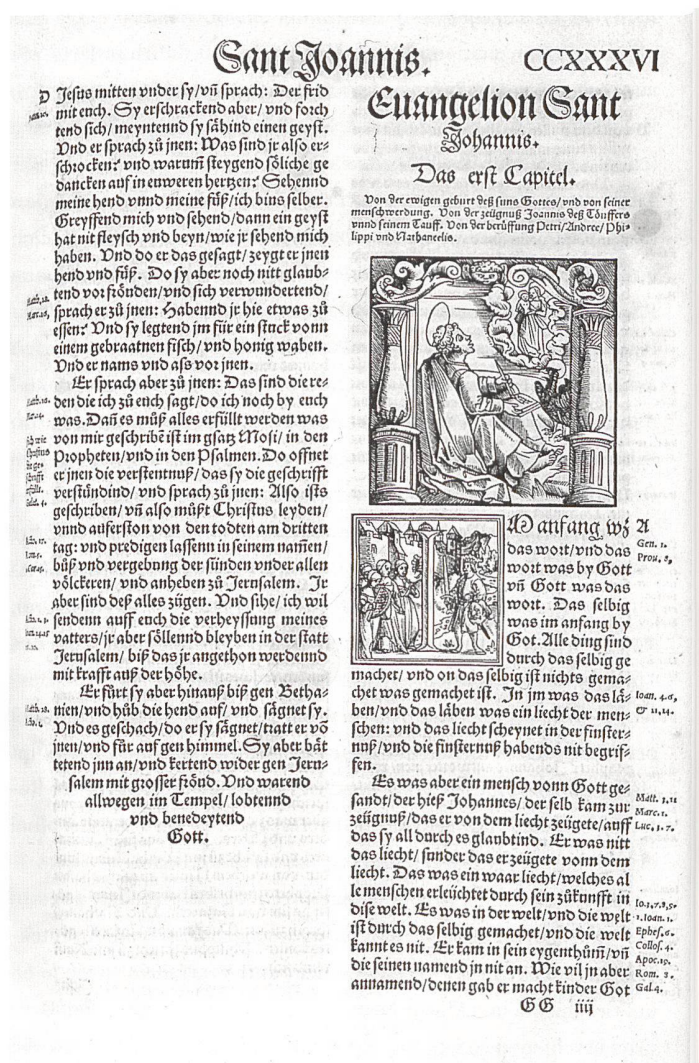 Sant Joannis. CCXXXVI
D Jesus mitten vnder sy/vñ sprach: Der frid
mit euch. Sy erschrackend aber/ vnd forch
tend sich/ meyntennd sy sähind einen geyst.
Vnd er sprach zů jnen: Was sind jr also er-
schrocken? vnd warum̃ steygend söliche ge
dancken auf in euweren hertzen? Sehennd
meine hend vnnd meine füß/ich bins selber.
Greyffend mich vnd sehend/dann ein geyst
hat nit fleysch vnd beyn/wie jr sehend mich
haben. Vnd do er das gesagt/ zeygt er jnen
hend vnd füß. Do sy aber noch nitt glaub-
tend vor fröuden/vnd sich verwundertend/
sprach er zů jnen: Habennd jr hie etwas zů
essen? Vnd sy legtend jm für ein stuck vonn
einem gebraatnen fisch/ vnd honig waben.
Vnd er nams vnd ass vor jnen.
Er sprach aber zů jnen: Das sind die re-
den die ich zů euch sagt/do ich noch by euch
was. Dañ es můß alles erfüllt werden was
von mir geschribẽ ist im gsatz Mosi/ in den
Propheten/vnd in den Psalmen. Do offnet
er jnen die verstentnuß/ das sy die geschrifft
verstündind/ vnd sprach zů jnen: Also ists
geschriben/ vñ also můßt Christus leyden/
vnnd auferston von den todten am dritten
tag: vnd predigen lassenn in seinem nam̃en/
bůß vnd vergebung der sünden vnder allen
völckeren/ vnd anheben zů Jerusalem. Jr
aber sind deß alles zügen. Vnd sihe/ ich wil
sendenn auff euch die verheyssung meines
vatters/jr aber söllennd bleyben in der statt
Jerusalem/ biß das jr angethon werdennd
mit krafft auß der höhe.
Er fůrt sy aber hinauß biß gen Betha-
nien/vnd hůb die hend auf/ vnd sägnet sy.
Vnd es geschach/ do er sy sägnet/tratt er võ
jnen/vnd fůr auf gen himmel. Sy aber bät
tetend jnn an/ vnd kertend wider gen Jeru-
salem mit grosser fröud. Vnd warend
allwegen im Tempel/ lobtennd
vnd benedeytend
Gott.
Euangelion Sant
Johannis.
Das erst Capitel.
Von der ewigen geburt deß suns Gottes/ vnd von seiner
menschwerdung. Von der zeügnuß Joannis deß Töuffers
vnnd seinem Tauff. Von der berůffung Petri/Andree/ Phi-
lippi vnd Nathanelis.
IM anfang wz A
das wort/ vnd das Gen. 1.
wort was by Gott Prou. 8,
vñ Gott was das
wort. Das selbig
was im anfang by
Got. Alle ding sind
durch das selbig ge
machet/ vnd on das selbig ist nichts gema-
chet was gemachet ist. In jm was das lä- Ioan. 4.6,
ben/vnd das läben was ein liecht der men- & 11,14.
schen: vnd das liecht scheynet in der finster-
nuß/vnd die finsternuß habends nit begrif-
fen.
Es was aber ein mensch vonn Gott ge-
sandt/ der hieß Johannes/ der selb kam zur Matt. 3.11
zeügnuß/das er von dem liecht zeügete/auff Marc.1.
das sy all durch es glaubtind. Er was nitt Luc, 1. 7.
das liecht/ sunder das er zeügete vonn dem
liecht. Das was ein waar liecht/welches al
le menschen erleüchtet durch sein zůkunfft in
dise welt. Es was in der welt/ vnd die welt 1.Ioan.1.
ist durch das selbig gemachet/vnd die welt Ephes.6.
kannt es nit. Er kam in sein eygenthům̃/vñ Collos. 4.
die seinen namend jn nit an. Wie vil jn aber Rom. 8.
annamend/denen gab er macht kinder Got Gal 4.
GG iiij